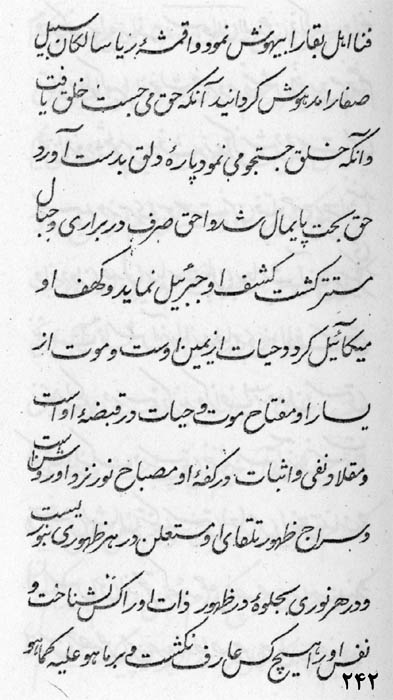 فنا اهل بقا را بیهوش نمود و اقمشهٔ رزیا سالکان سبیل
صفا را مدهوش گردانید آنکه حق می جست خلق یافت
و آنکه خلق جستجو می نمود پارهٔ دلق بدست آورد
حق بحت پایمال شد و احق صرف در براری و جبال
مستتر گشت کشف او جبرئیل نماید و کهف او
میکائیل گردد حیات از یمین اوست و موت از
یسار او مفتاح موت و حیات در قبضهٔ او است
و مقلاد نفی و اثبات در کفهٔ او مصباح نور نزد او روشن است
و سراج ظهور تلقای او مستعلن در هر ظهوری بنوریست
و در هر نوری بجلوهٔ در ظهور ذات او را کس نشناخت و
نفس او را هیچ کس عارف نگشت و بر ما هو علیه کما هو
۲۴۲